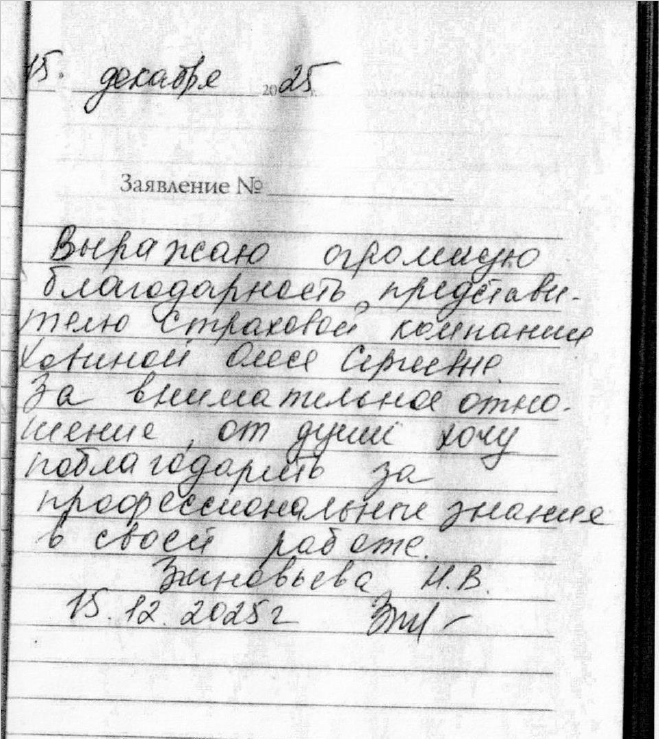 15. декабря 2025 г.
Заявление №
Выражаю огромную
благодарность, представи-
телю страховой компании
Ховиной Олесе Сергеевне
За внимательное отно-
шение, от души хочу
поблагодарить за
профессиональные знания
в своей работе.
Зиновьева Н.В.
15.12.2025г